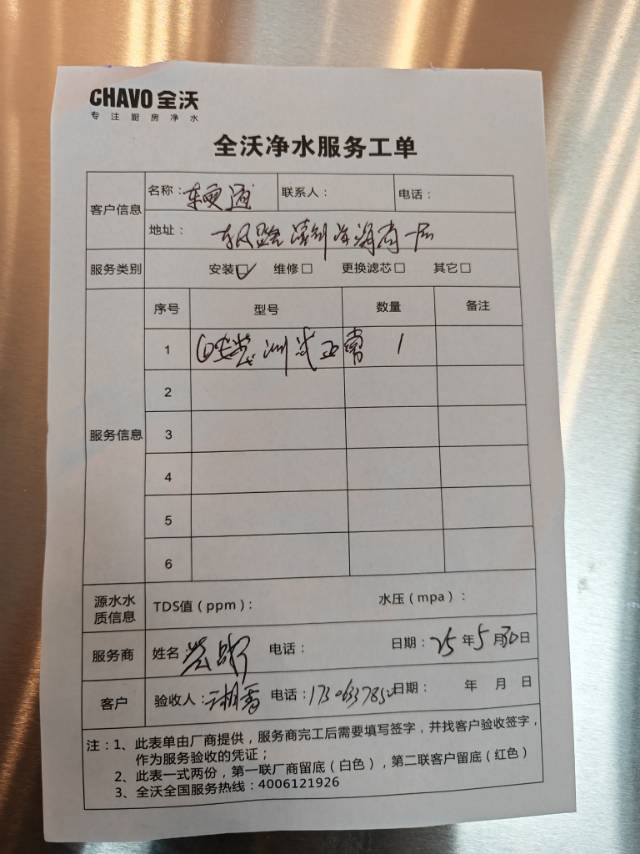 CHAVO 全沃
专注厨房净水
全沃净水服务工单
客户信息 名称： 联系人： 电话：
地址：
服务类别 安装☑ 维修□ 更换滤芯□ 其它□
服务信息 序号 型号 数量 备注
1 已安装 测试正常 1
2
3
4
5
6
源水水质信息 TDS值（ppm）： 水压（mpa）：
服务商 姓名 电话： 日期：25年5月30日
客户 验收人： 电话： 日期： 年 月 日
注：1、此表单由厂商提供，服务商完工后需要填写签字，并找客户验收签字，
作为服务验收的凭证；
2、此表一式两份，第一联厂商留底（白色），第二联客户留底（红色）
3、全沃全国服务热线：4006121926